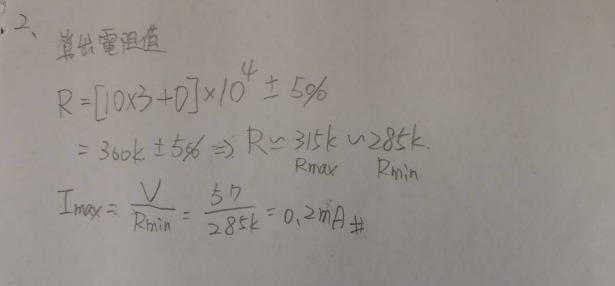 2、
算出電阻值
R=[10×3+0]×10⁴±5%
=300k±5%⇒R≃315k∽285k.
Rmax Rmin
Imax=V/Rmin=57/285k=0.2mA#